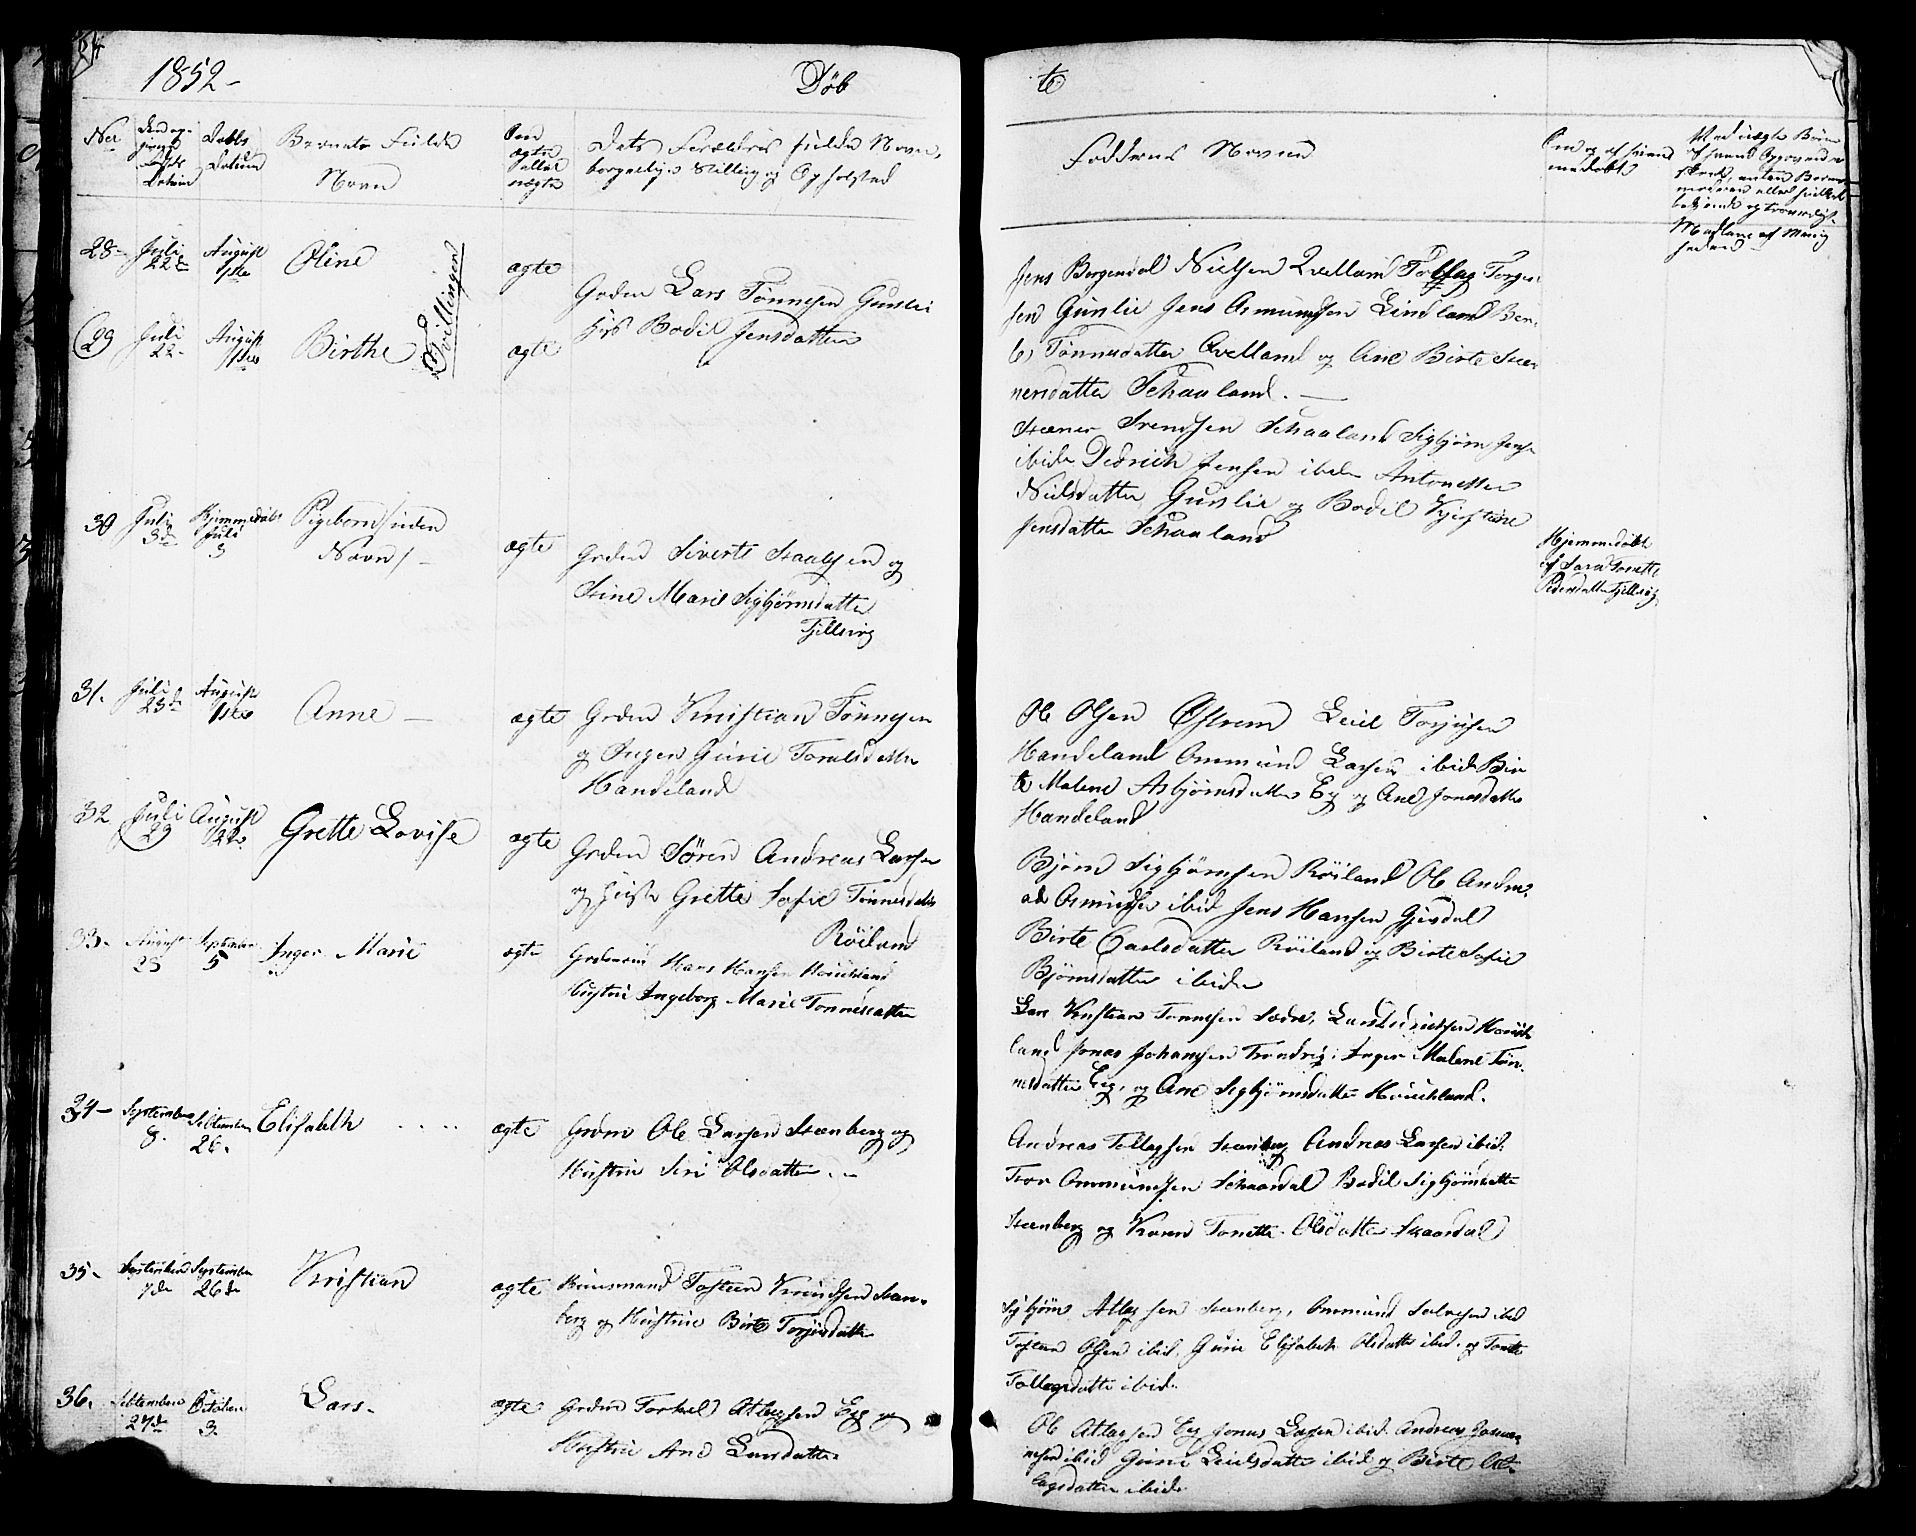 1852 - Døb
te
No
Døbte
Datum
Barnets Fulde
Navn
Om
ægte
eller
uægte
Dets Forældres fulde Navne,
borgerlige Stilling og Opholsted
Faddernes Navne
28- Juli 22de August 1ste Oline ægte
Tvillinger
Grdm Lars Tønnesen Gunslei
Bodil Jensdatter
29 Juli 22- August 1ste Birthe ægte
Jens Bergendal Nielsen Qvelland Tollag Torger-
sen Gunslie Jens Osmundsen Lindland Ber-
te Tønnesdatter Qvelland og Ane Birte Stee-
nersdatter Schaaland. -
Steener Svendsen Schaaland Sigbjørn Jens
ibid Didrich Jensen ibid Antonette
Nielsdatter Gunslie og Bodil Kjistine
Jensdatter Schaaland
30 Juli 3de Hjemmedøbt Juli 3 Pigebarn /uden
Navn/ - ægte
Grdm Sivert Staalesen og
Stine Marie Sigbjørnsdatter
Fjellsvig
Hjemmedøbt
af Sara Tonette
Pedersdatter Fjellsvig
31. Juli 23de August 1ste Anne - ægte Grdm Kristian Tønnesen
og Inger Gurie Tomisdatter
Handeland
Ole Olsen Østrem Leul Torjusen
Handeland Ommund Larsen ibid Bir
te Malene Asbjørnsdatter Eg og Ane Jonasdatter
Handeland
32 Juli 29 August 22 Grette Lovise ægte Grdm Søren Andreas Larsen
og Hustr Grette Sofie Tønnesdatter
Røiland
Bjørn Sigbjørnsen Røiland Ole Andre-
as Osmundsen ibid Jens Hansen Gjersdal
Birte Carlsdatter Røiland og Birte Sofie
Bjørnsdatter ibid
33- August 25 September 5 Inger Marie ægte Grdm Hans Hansen Houchland
Hustru Ingeborg Marie Tønnesdatter
Lars Kristian Tønnesen Sædre, Lars Didriksen Houch-
land Jonas Johansen Trondvig, Inger Malene Tøn-
nesdatter Eeg, og Ane Sigbjørnsdatter Houchland.
34- September 8. Sebtember 26. Elisabeth .... ægte Grdm Ole Larsen Steenberg og
Hustrue Siri Olsdatter. -
Andreas Tollagsen Steenberg Andreas Larsen ibid.
Tore Ommundsen Schaardal Bodil Sigbjørnsdatter
Steenberg og Karen Tonette Olsdatter Skaardal
35- September 7de September 26de Kristian ægte Huusmand Tosteen Knudsen Steen-
berg og Hustrue Birte Torjusdatter
Sigbjørn Atlagsen Steenberg, Ommund Salvesen ibid
Tosteen Olsen ibid, Gurie Elisabeth Olsdatter ibid. og Tonette
Tollagsdatter ibid.
36. Sebtember 27de October 3. Lars. ægte Grdm Torkel Atlagsen Eeg og
Hustrue Ane Larsdatter
Ole Atlagsen Eeg Jonas Larsen ibid Andreas
ibid Gurine Leulsdatter ibid og Birte Atl-
lagsdatter ibid.